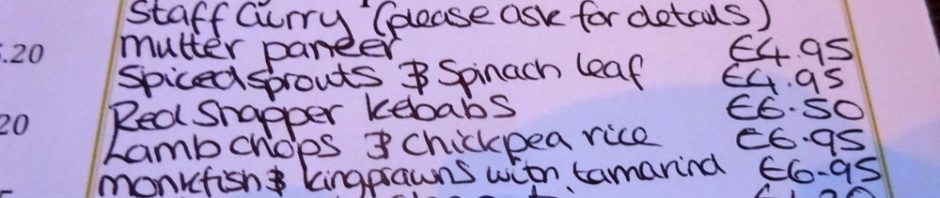 Staff Curry (please ask for details)
.20 mutter paneer £4.95
Spiced sprouts & Spinach leaf £4.95
Red Snapper Kebabs £6.50
20 Lamb chops & chickpea rice £6.95
monkfish & kingprawns with tamarind £6-95